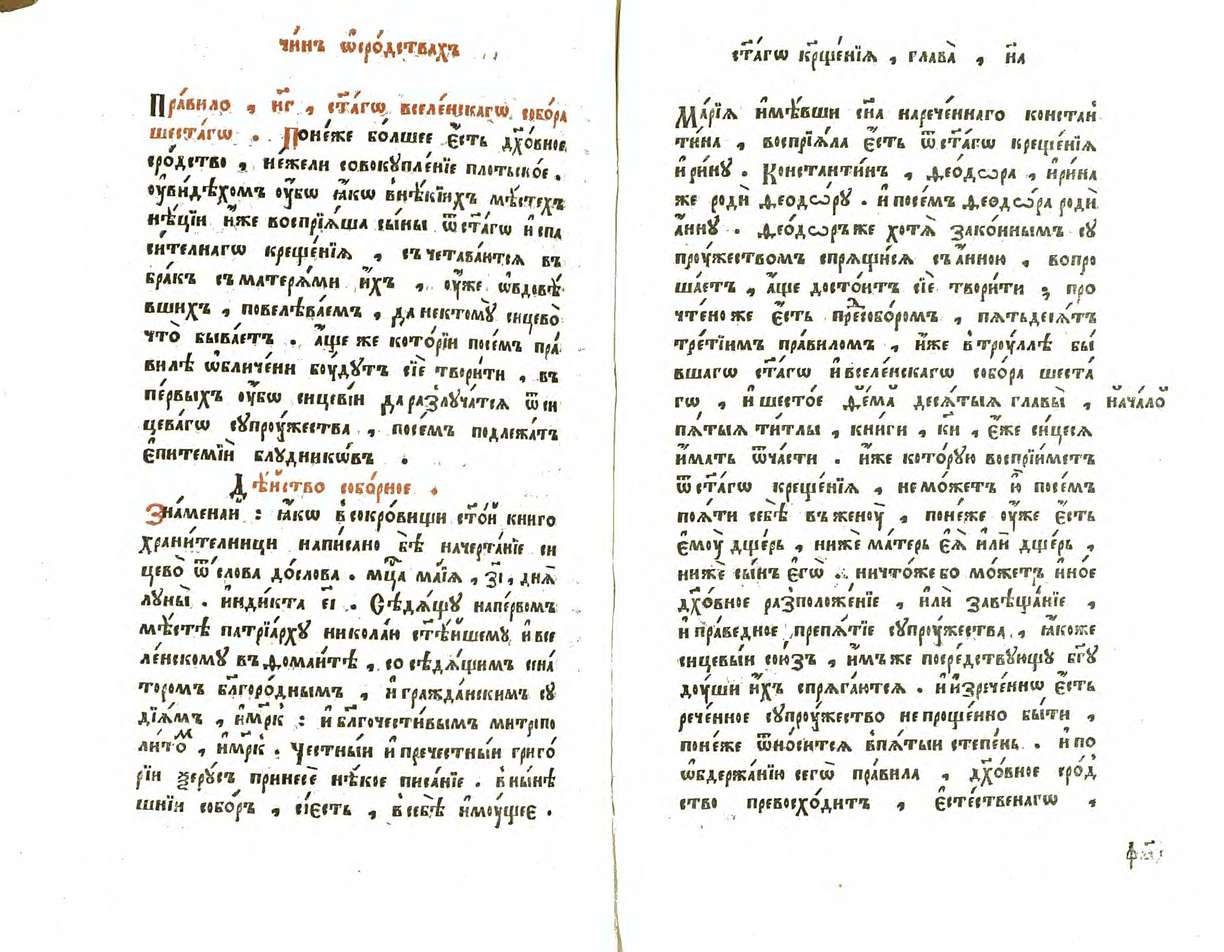 чи́нъ ѡ҆сро́дствахъ
Пра́вило , н҃г , ст҃а́гѡ вселе́нскагѡ собо́ра
шеста́гѡ . Поне́же бо́лшее є҆́сть дх҃о́вное
сро́дство , не́жели совокупле́нїе плотьско́е .
оу҆ви́дѣхомъ оу҆́бѡ ꙗ҆́кѡ внѣ́кїихъ мѣ́стехъ
нѣ́цїи и҆́же воспрїѧ́ша сы́ны ѿст҃а́гѡ и҆ спа
си́телнагѡ креще́нїѧ , съчетава́ютсѧ въ
бра́къ съматерѧ́ми и҆́хъ , оу҆же ѡ҆вдовѣ́
вшихъ , повелѣва́емъ , да нектому̀ сицево̀
что̀ быва́етъ . а҆́ще же кото́рїи посе́мъ пра́
вилѣ ѡ҆бличе́ни бꙋ́дутъ сїѐ твори́ти , въ
пе́рвыхъ оу҆́бѡ сицеві́и даразлуча́тсѧ ѿси
цева́гѡ супрꙋ́жества , посе́мъ подлежа́тъ
є҆питемїи́ блудникѡ́въ .
Дѣ́йство собо́рное .
Зна́менай : ꙗ҆́кѡ в сокро́вищи ст҃о́й книго
храни́телници напи́сано бѣ̀ начерта́нїе си
цево̀ ѿ сло́ва до́слова . мц҃а ма́їѧ , з҃і , днѧ̀
луны̀ . и҆нди́кта є҃і . Сѣдѧ́щу напе́рвомъ
мѣ́стѣ патрїа́рху никола́ю ст҃ѣ́йшему и҆ все
ле́нскому въ ѳомаи́тѣ , со сѣдѧ́щимъ сина́
торомъ бл҃горо́днымъ , и҆ гражда́нскимъ су
дїѧ́мъ , и҆м҃рк : и҆ бл҃гочести́вымъ митропо
ли́то , и҆м҃рк . Че́стный и҆ пречестны́й григо́
рїи ѯерꙋсъ принесѐ нѣ́кое писа́нїе . в ны́нѣ
шнїй собо́ръ , сїе́сть , в себѣ̀ и҆мꙋ́щее .
ст҃а́гѡ крщ҃е́нїѧ , глава̀ , н҃а
Марі́ѧ и҆мѣ́вши сн҃а нарече́ннаго констан
ти́на , воспрїѧла є҆́сть ѿст҃а́гѡ креще́нїѧ
и҆ри́ну . Константи́нъ , ѳео́дѡра , и҆ри́на
же родѝ ѳеодѡ́ру . и҆ посе́мъ ѳеодѡ́ра родѝ
а҆́нну . ѳео́дѡръ же хотѧ̀ зако́ннымъ су
прꙋ́жествомъ спрѧщи́сѧ съ а҆́нною , вопро
ша́етъ , а҆́ще досто́итъ сїѐ твори́ти ; про
чтено́ же є҆́сть пресобо́ромъ , пѧтьдесѧ́тъ
тре́тїимъ пра́виломъ , и҆́же в трꙋ́ллѣ бы́
вшагѡ ст҃а́гѡ и҆ вселе́нскагѡ собо́ра шеста́
гѡ , и҆ шесто́е ѳе́ма десѧ́тыѧ главы̀ , нача́ло
пѧ́тыѧ ти́тлы , кни́ги , к҃и , є҆́же си́цесѧ
и҆́мать ѿча́сти . и҆́же кото́рую воспрїи́метъ
ѿст҃а́гѡ креще́нїѧ , не мо́жетъ ю҆̀ посе́мъ
поѧ́ти себѣ̀ въ женꙋ̀ , поне́же оу҆же є҆́сть
є҆мꙋ̀ дще́рь , ниже ма́терь є҆ѧ̀ и҆лѝ дще́рь ,
ниже сы́нъ є҆гѡ̀ . ничто́же бо мо́жетъ и҆но́е
дх҃о́вное разположе́нїе , и҆лѝ завѣща́нїе ,
и҆ пра́ведное препѧ́тїе супрꙋ́жества , ꙗ҆́коже
сицевы́й сою́зъ , и҆́мъже посре́дствующу бг҃у
дꙋ́ши и҆́хъ спрѧга́ютсѧ . и҆ и҆зрече́ннѡ є҆́сть
рече́нное супрꙋ́жество непроще́нно бы́ти ,
поне́же ѿно́ситсѧ в пѧ́тый сте́пень . и҆ по
ѡ҆бдержа́нїю сегѡ̀ пра́вила , дх҃о́вное сро́д
ство превосхо́дитъ , є҆сте́ственагѡ ,